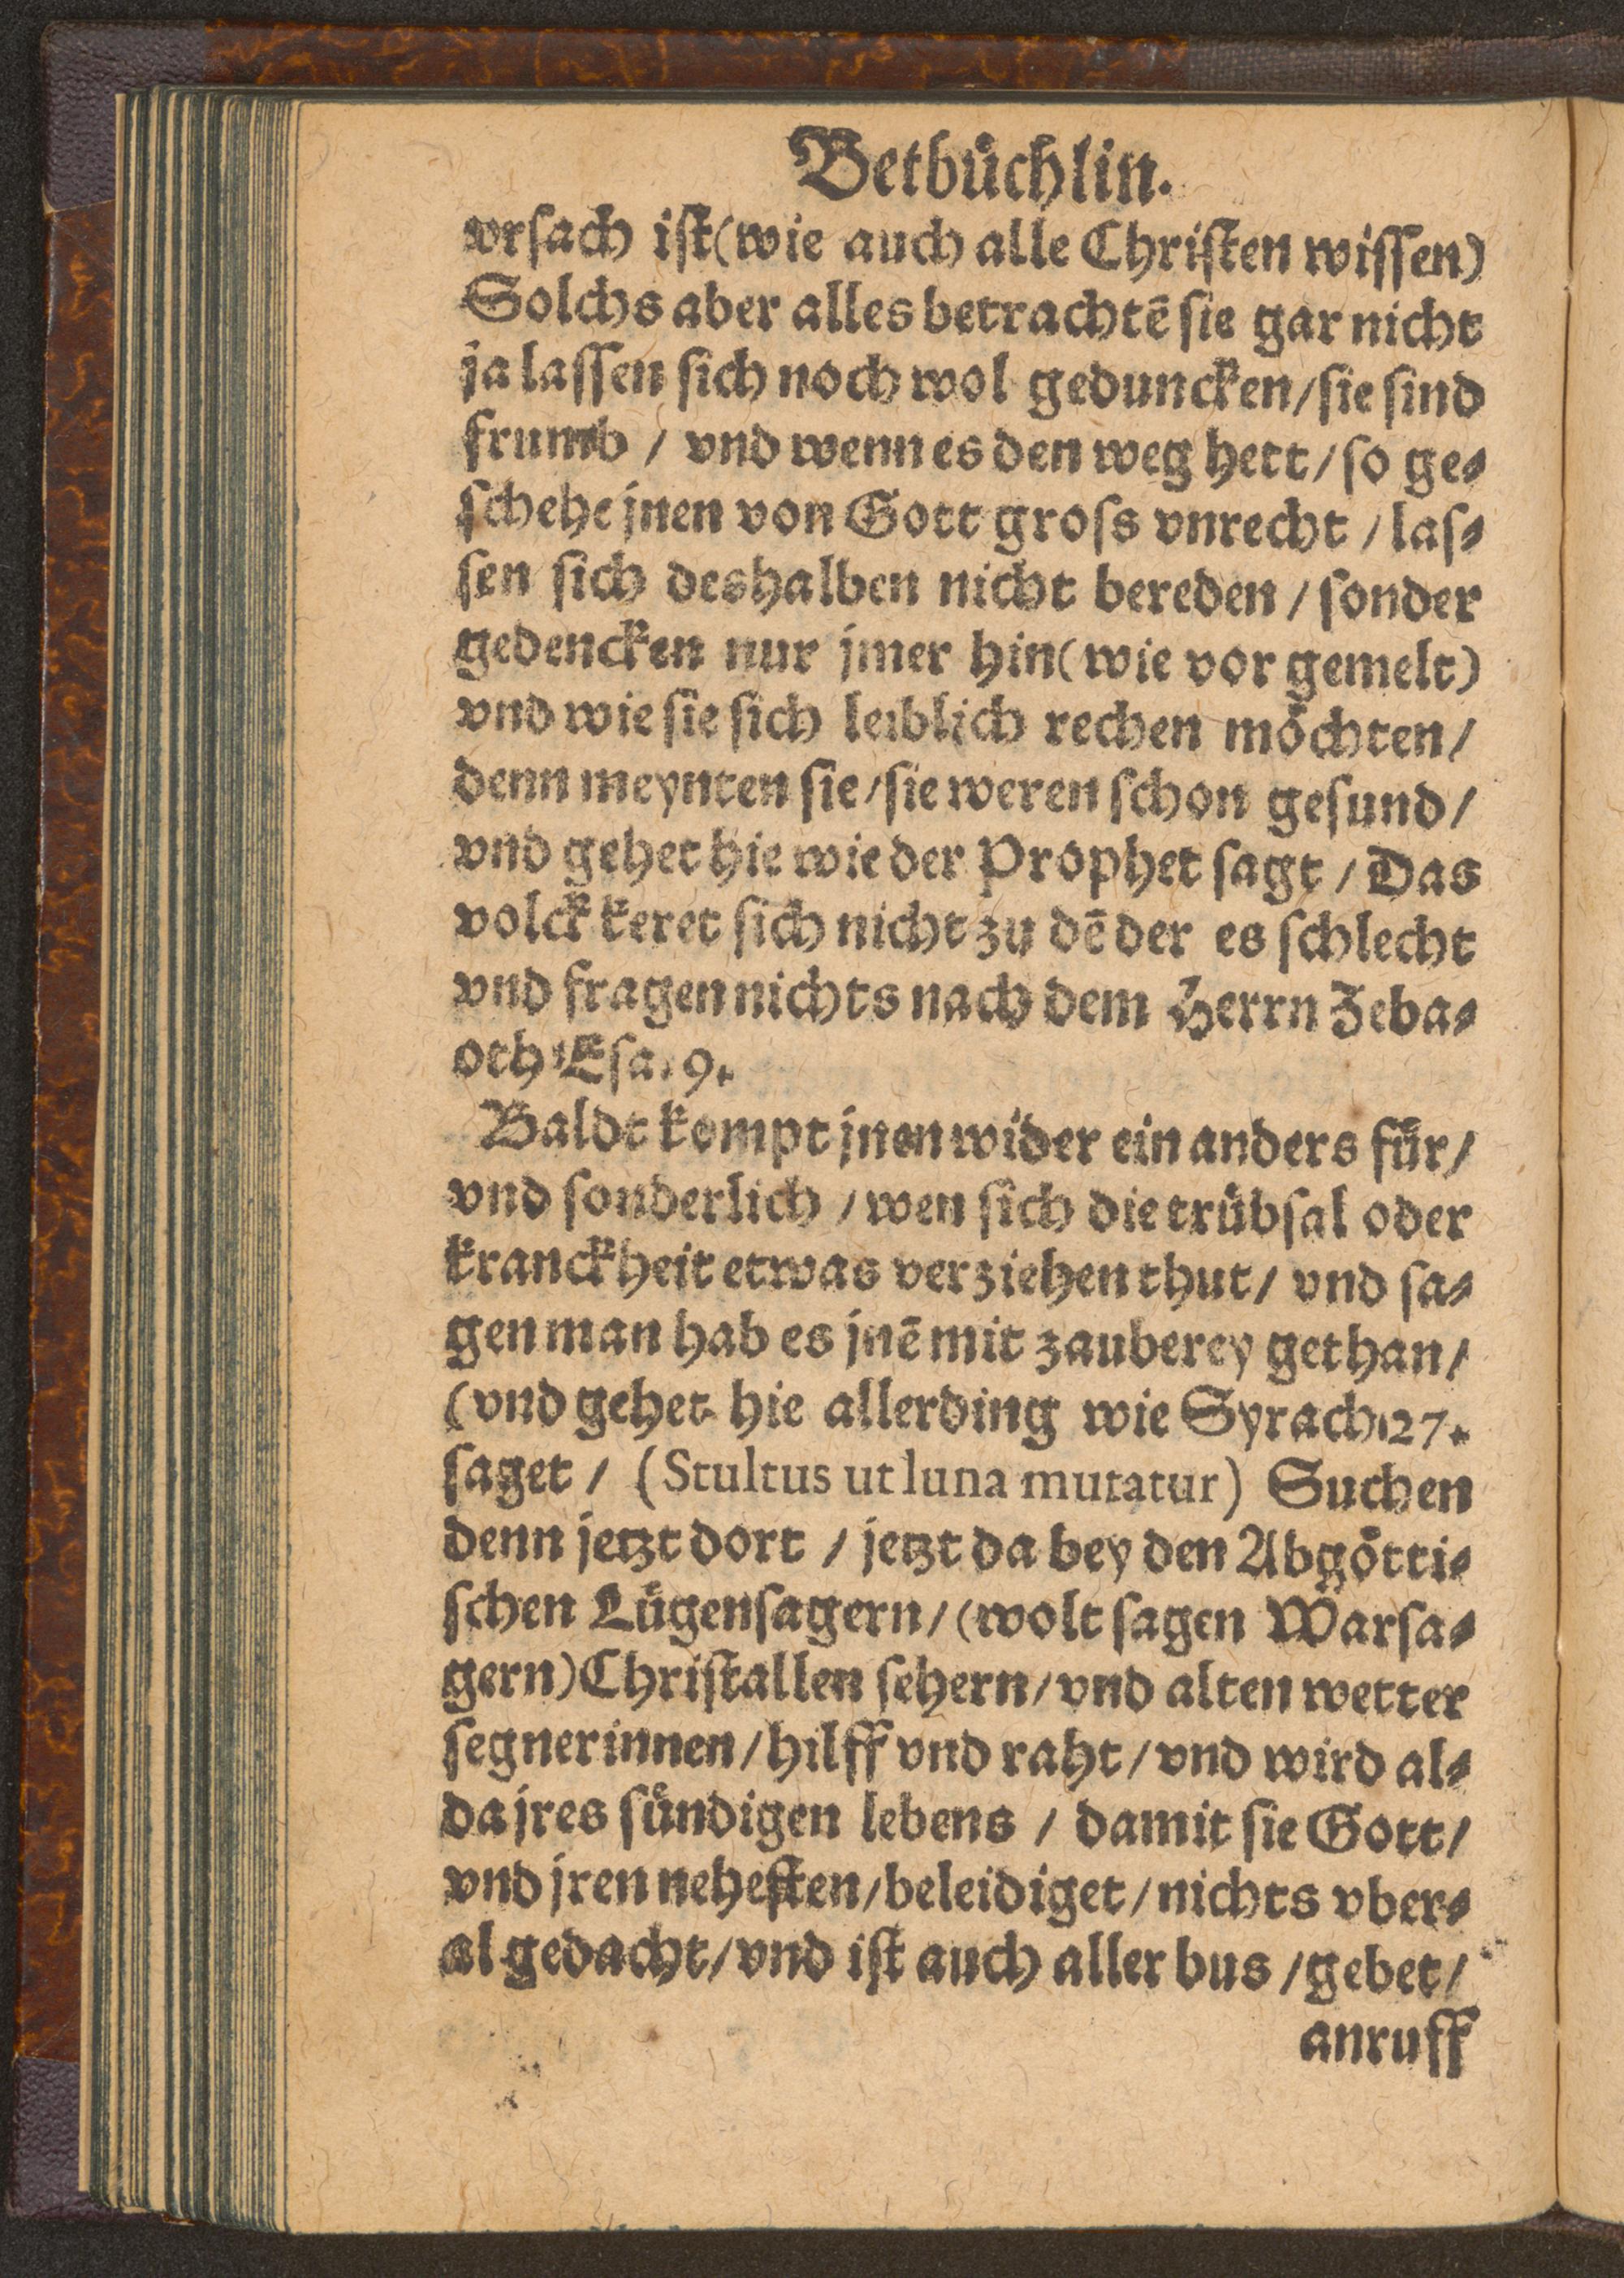 Betbuͤchlin.
vrſach iſt(wie auch alle Chriſten wiſſen)
Solchs aber alles betrachtē ſie gar nicht
ja laſſen ſich noch wol geduncken/ſie ſind
frumb / vnd wenn es den weg hett/ſo ge⸗
ſchehe jnen von Gott groſs vnrecht / laſ⸗
ſen ſich deshalben nicht bereden / ſonder
gedencken nur jmer hin(wie vor gemelt)
vnd wie ſie ſich leiblich rechen moͤchten/
denn meynten ſie/ſie weren ſchon geſund/
vnd gehet hie wie der Prophet ſagt / Das
volck keret ſich nicht zu dē der es ſchlecht
vnd fragen nichts nach dem Herrn Zeba⸗
oth Eſa. 9.
Baldt kompt jnen wider ein anders fuͤr/
vnd ſonderlich / wen ſich die truͤbſal oder
kranckheit etwas verziehen thut/ vnd ſa⸗
gen man hab es jnē mit zauberey gethan/
(vnd gehet hie allerding wie Syrach. 27.
ſaget / (Stultus ut luna mutatur) Suchen
denn jetzt dort / jetzt da bey den Abgoͤtti⸗
ſchen Luͤgenſagern/(wolt ſagen Warſa⸗
gern)Chriſtallen ſehern/vnd alten wetter
ſegnerinnen/hilff vnd raht/vnd wird al⸗
da jres ſuͤndigen lebens / damit ſie Gott/
vnd jren neheſten/beleidiget/nichts vber⸗
al gedacht/vnd iſt auch aller bus /gebet/
anruff